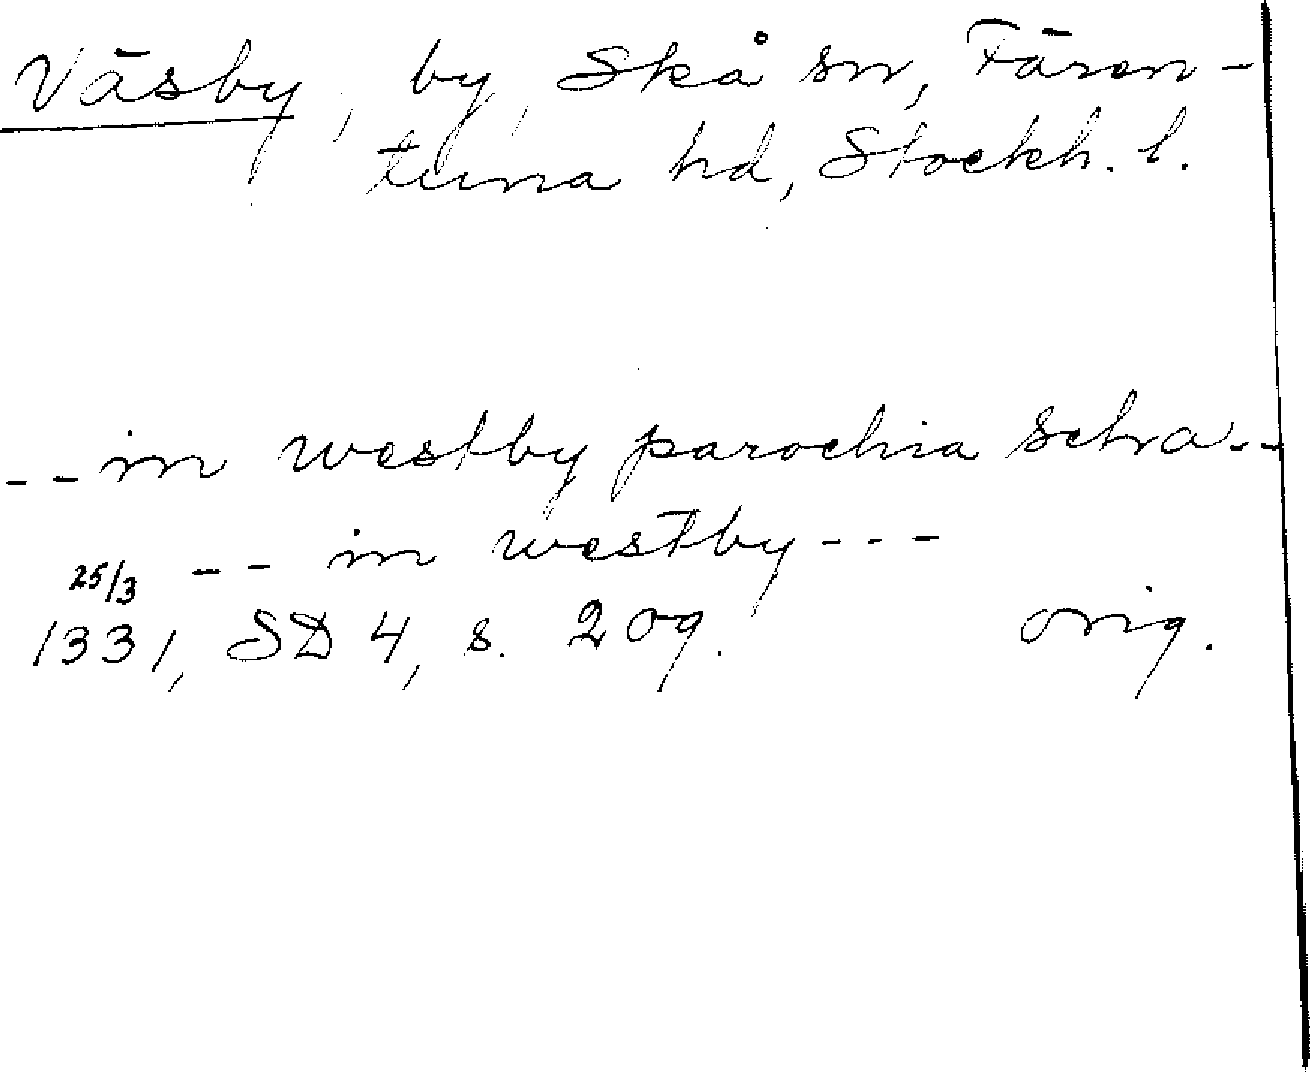 Väsby, by, Skå sn, Fären-
tuna hd, Stockh. l.
-- in westby parochia schra --
-- in westby ---
25/3
1331, SD 4, s. 209. orig.